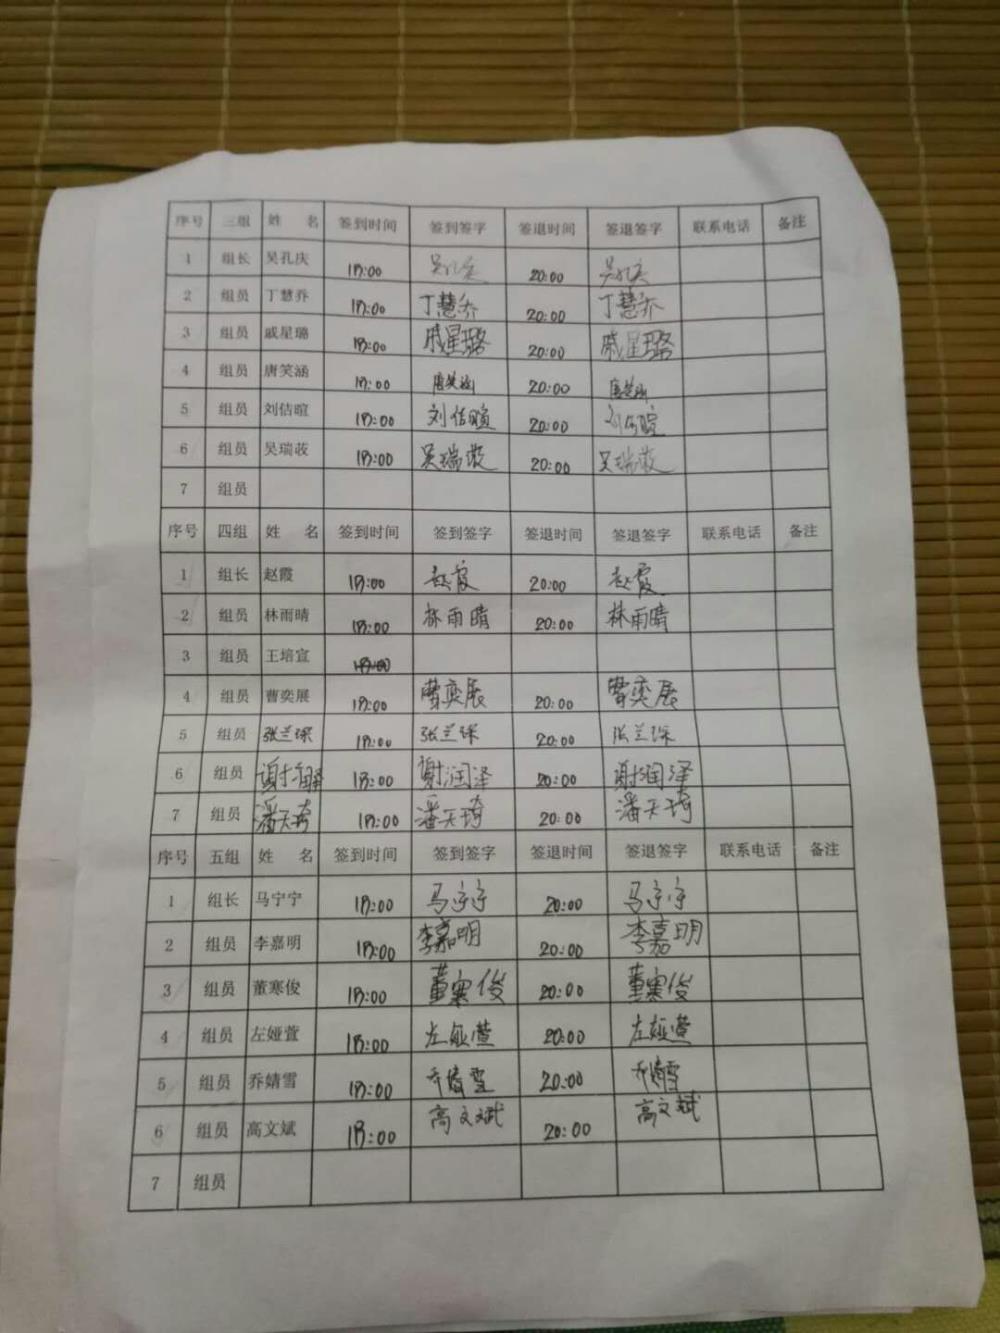 序号 三组 姓 名 签到时间 签到签字 签退时间 签退签字 联系电话 备注
1 组长 吴孔庆 18:00 吴孔庆 20:00 吴孔庆
2 组员 丁慧乔 18:00 丁慧乔 20:00 丁慧乔
3 组员 戚星璐 18:00 戚星璐 20:00 戚星璐
4 组员 唐笑涵 18:00 唐笑涵 20:00 唐笑涵
5 组员 刘佶暄 18:00 刘佶暄 20:00 刘佶暄
6 组员 吴瑞荍 18:00 吴瑞荍 20:00 吴瑞荍
7 组员
序号 四组 姓 名 签到时间 签到签字 签退时间 签退签字 联系电话 备注
1 组长 赵霞 18:00 赵霞 20:00 赵霞
2 组员 林雨晴 18:00 林雨晴 20:00 林雨晴
3 组员 王培宣
4 组员 曹奕展 18:00 曹奕展 20:00 曹奕展
5 组员 张兰琛 18:00 张兰琛 20:00 张兰琛
6 组员 谢润泽 18:00 谢润泽 20:00 谢润泽
7 组员 潘天琦 18:00 潘天琦 20:00 潘天琦
序号 五组 姓 名 签到时间 签到签字 签退时间 签退签字 联系电话 备注
1 组长 马宁宁 18:00 马宁宁 20:00 马宁宁
2 组员 李嘉明 18:00 李嘉明 20:00 李嘉明
3 组员 董寒俊 18:00 董寒俊 20:00 董寒俊
4 组员 左娅萱 18:00 左娅萱 20:00 左娅萱
5 组员 乔婧雪 18:00 乔婧雪 20:00 乔婧雪
6 组员 高文斌 18:00 高文斌 20:00 高文斌
7 组员